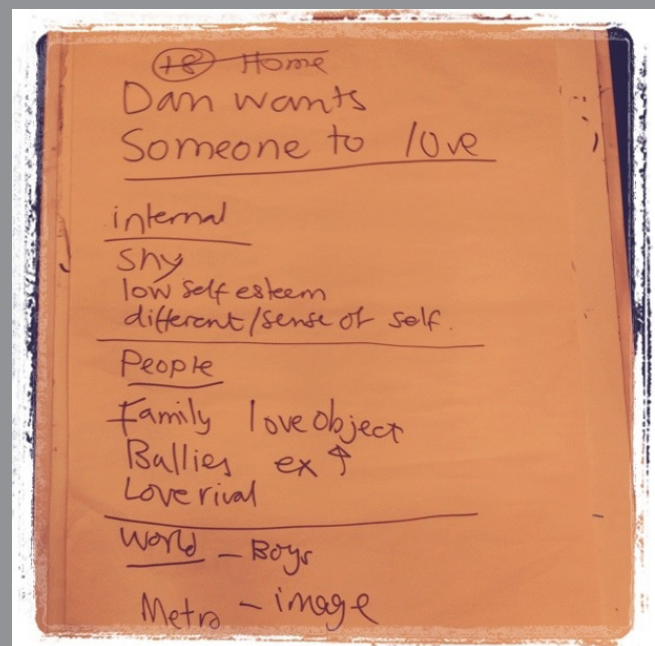 +8 Home
Dan wants
Someone to love
internal
Shy
low self esteem
different/sense of self.
People
Family love object
Bullies ex ↑
Love rival
World - Boys
Metro - image